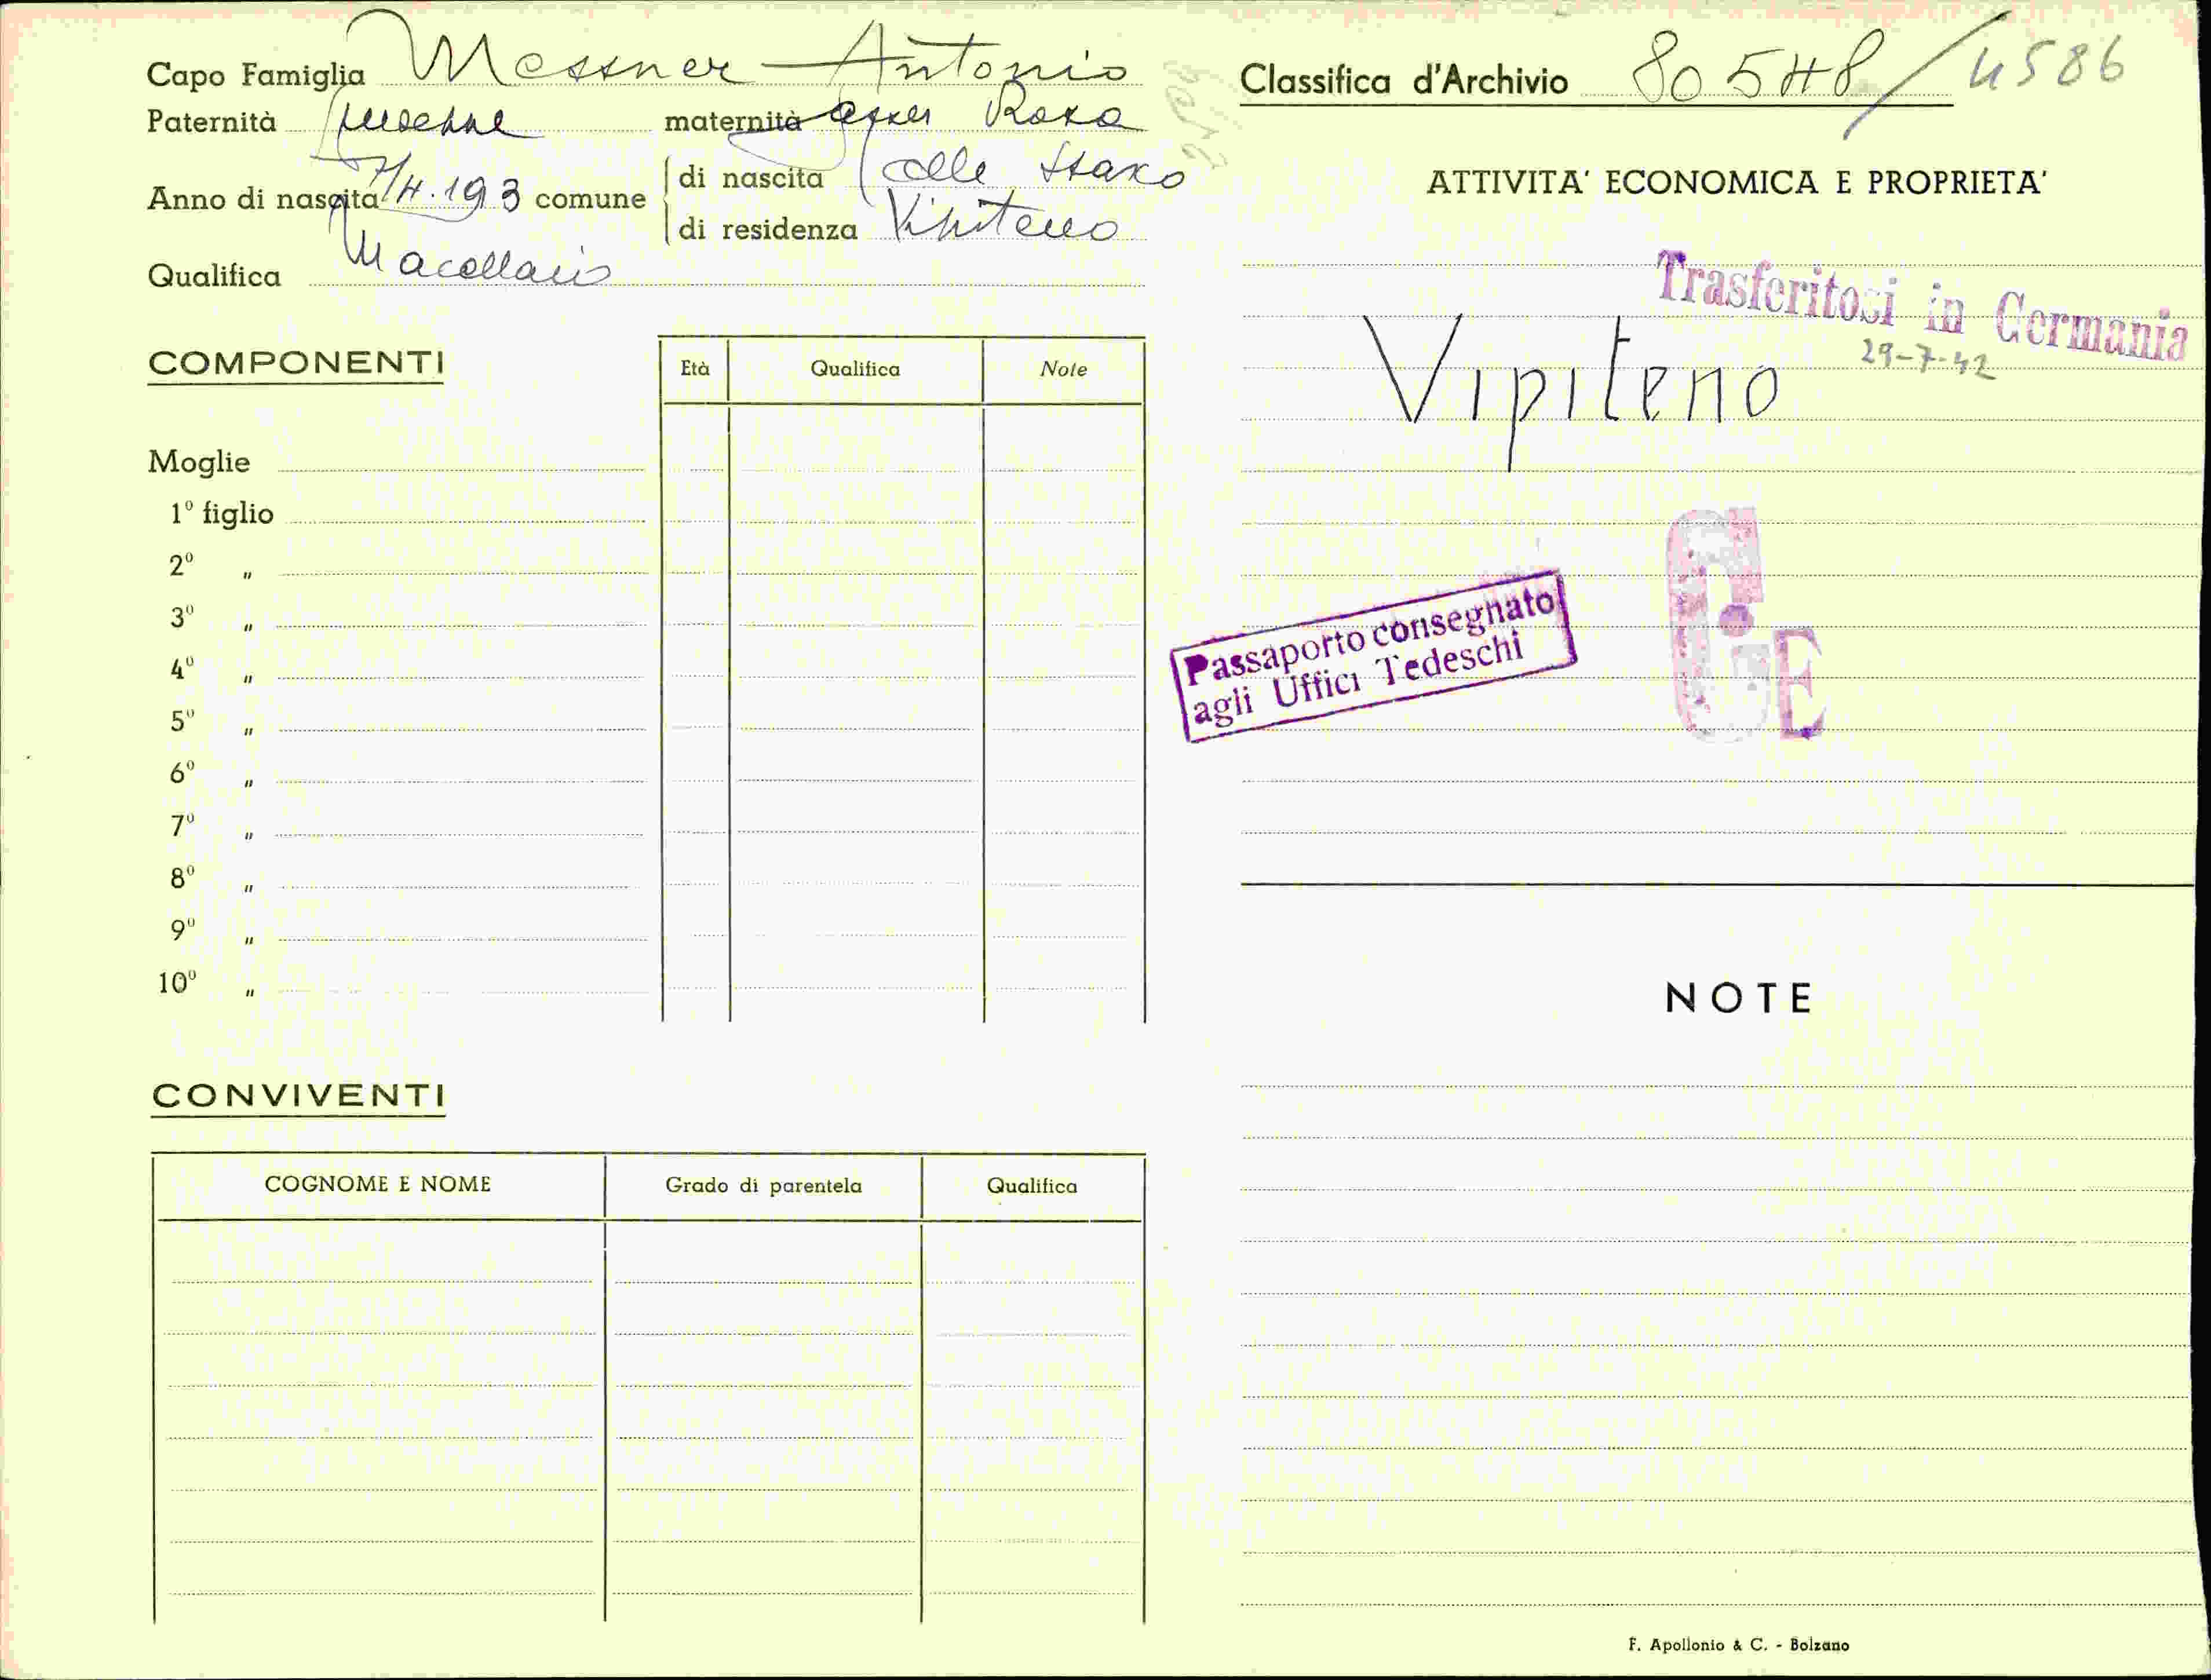 Capo Famiglia Messner Antonio
Paternità Giuseppe maternità Rosa
Anno di nascita 7/4.193 comune
di nascita Colle Isarco
di residenza Vipiteno
Qualifica Macellaio
COMPONENTI
Età Qualifica Note
Moglie
1º figlio
2º "
3º "
4º "
5º "
6º "
7º "
8º "
9º "
10º "
CONVIVENTI
COGNOME E NOME Grado di parentela Qualifica
Classifica d'Archivio 80548/4586
ATTIVITA' ECONOMICA E PROPRIETA'
Trasferitosi in Germania
29-7-42
Vipiteno
Passaporto consegnato
agli Uffici Tedeschi
G.E
NOTE
F. Apollonio & C. - Bolzano